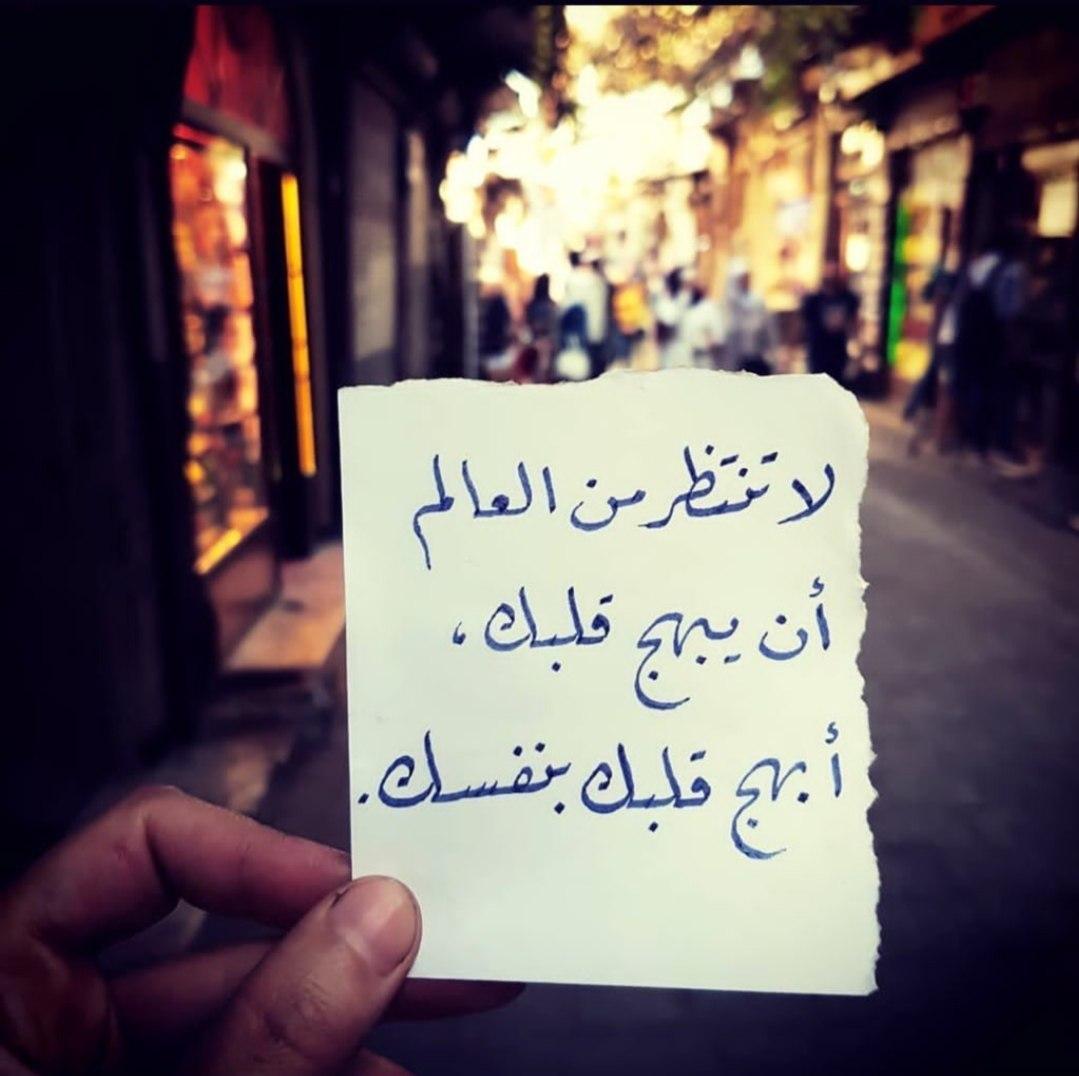 لا تنتظر من العالم
أن يبهج قلبك ،
أبهج قلبك بنفسك.